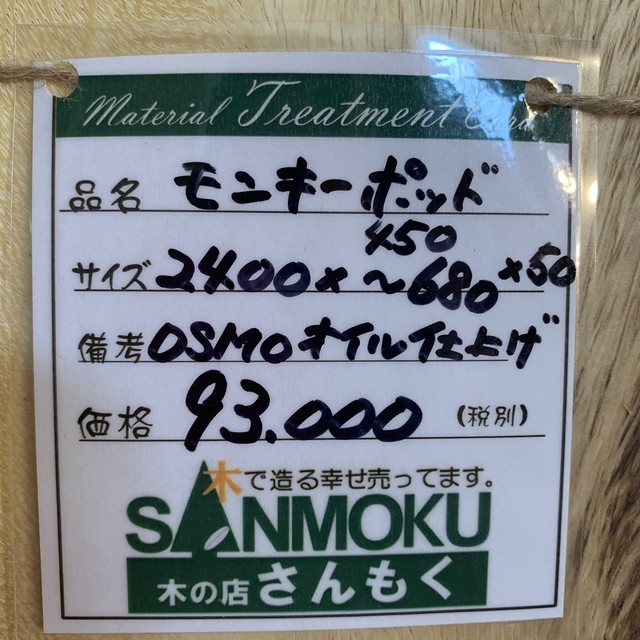 Material Treatment Card
品名 モンキーポッド
サイズ 2400×450～680×50
備考 OSMOオイル仕上げ
価格 93.000 (税別)
木で造る幸せ売ってます。
SANMOKU
木の店さんもく